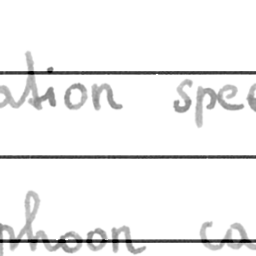 ation spee
phoon ca